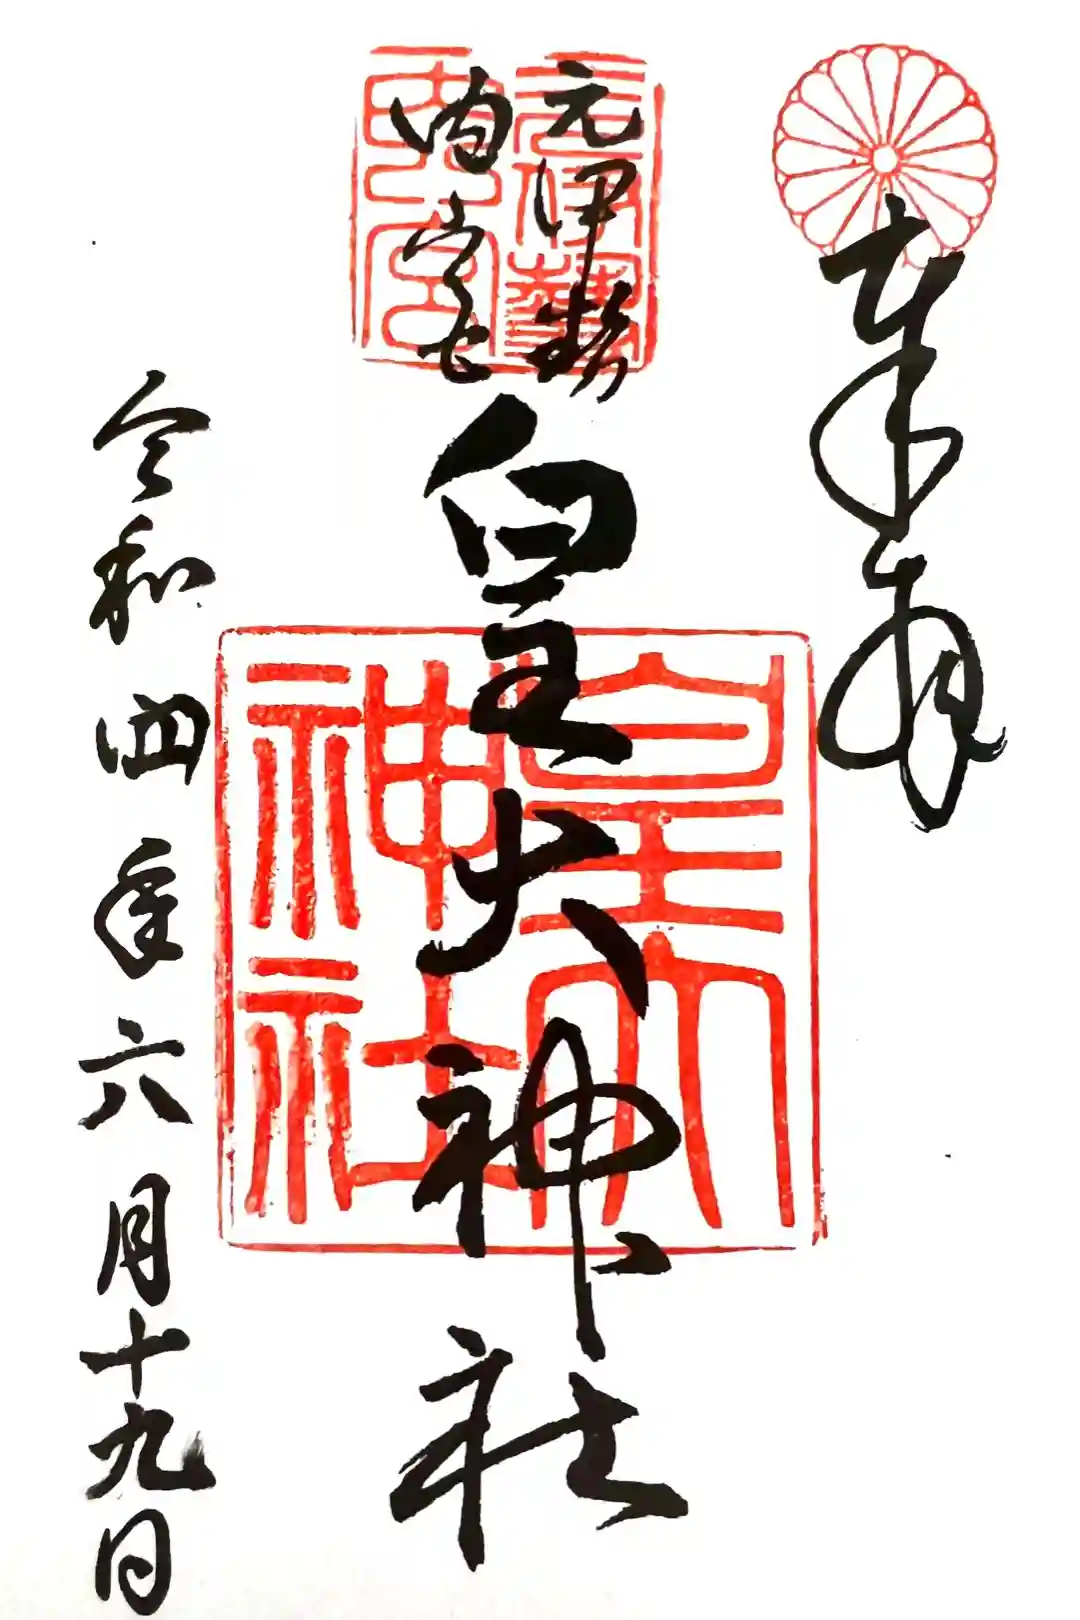 奉拝
元伊勢
内宮
皇大神社
令和四年六月十九日
元伊勢
内宮
皇大
神社